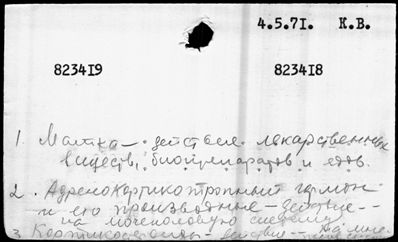 4.5.71. К.В.
823419 823418
1. Матка – действие лекарственных
веществ, биопрепаратов и ядов.
2. Адренокортикотропный гормон
и его производные – действие –
на мочеполовую систему
3 Кортикостероиды – действие – на моче-